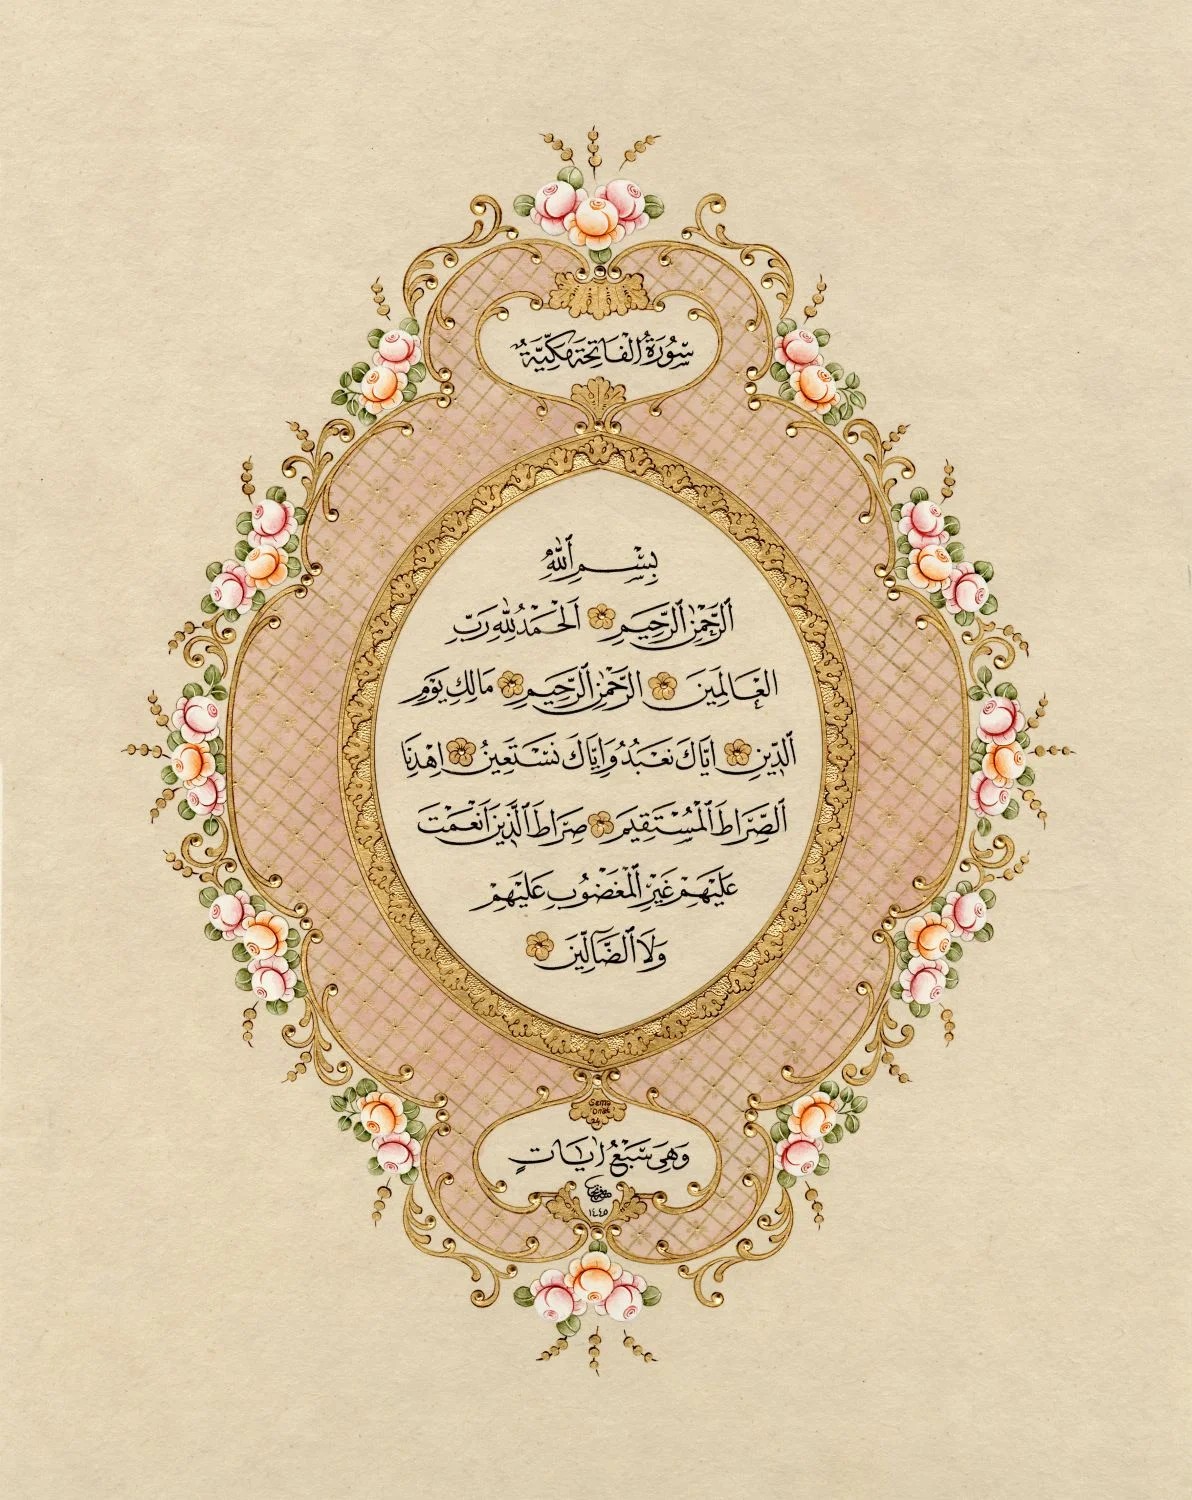 سُورَةُ الْفَاتِحَةِ مَكِّيَّةٌ
بِسْمِ ٱللّٰهِ
ٱلرَّحْمٰنِ ٱلرَّحِيمِ اَلْحَمْدُ لِلّٰهِ رَبِّ
الْعَالَمِينَ الرَّحْمٰنِ ٱلرَّحِيمِ مَالِكِ يَوْمِ
ٱلدِّينِ اِيَّاكَ نَعْبُدُ وَاِيَّاكَ نَسْتَعِينُ اِهْدِنَا
ٱلصِّرَاطَ ٱلْمُسْتَقِيمَ صِرَاطَ ٱلَّذِينَ اَنْعَمْتَ
عَلَيْهِمْ غَيْرِ ٱلْمَغْضُوبِ عَلَيْهِمْ
وَلَا ٱلضَّٓالِّينَ
Sema
Onat
24
وَهِيَ سَبْعُ اٰيَاتٍ
١٤٤٥